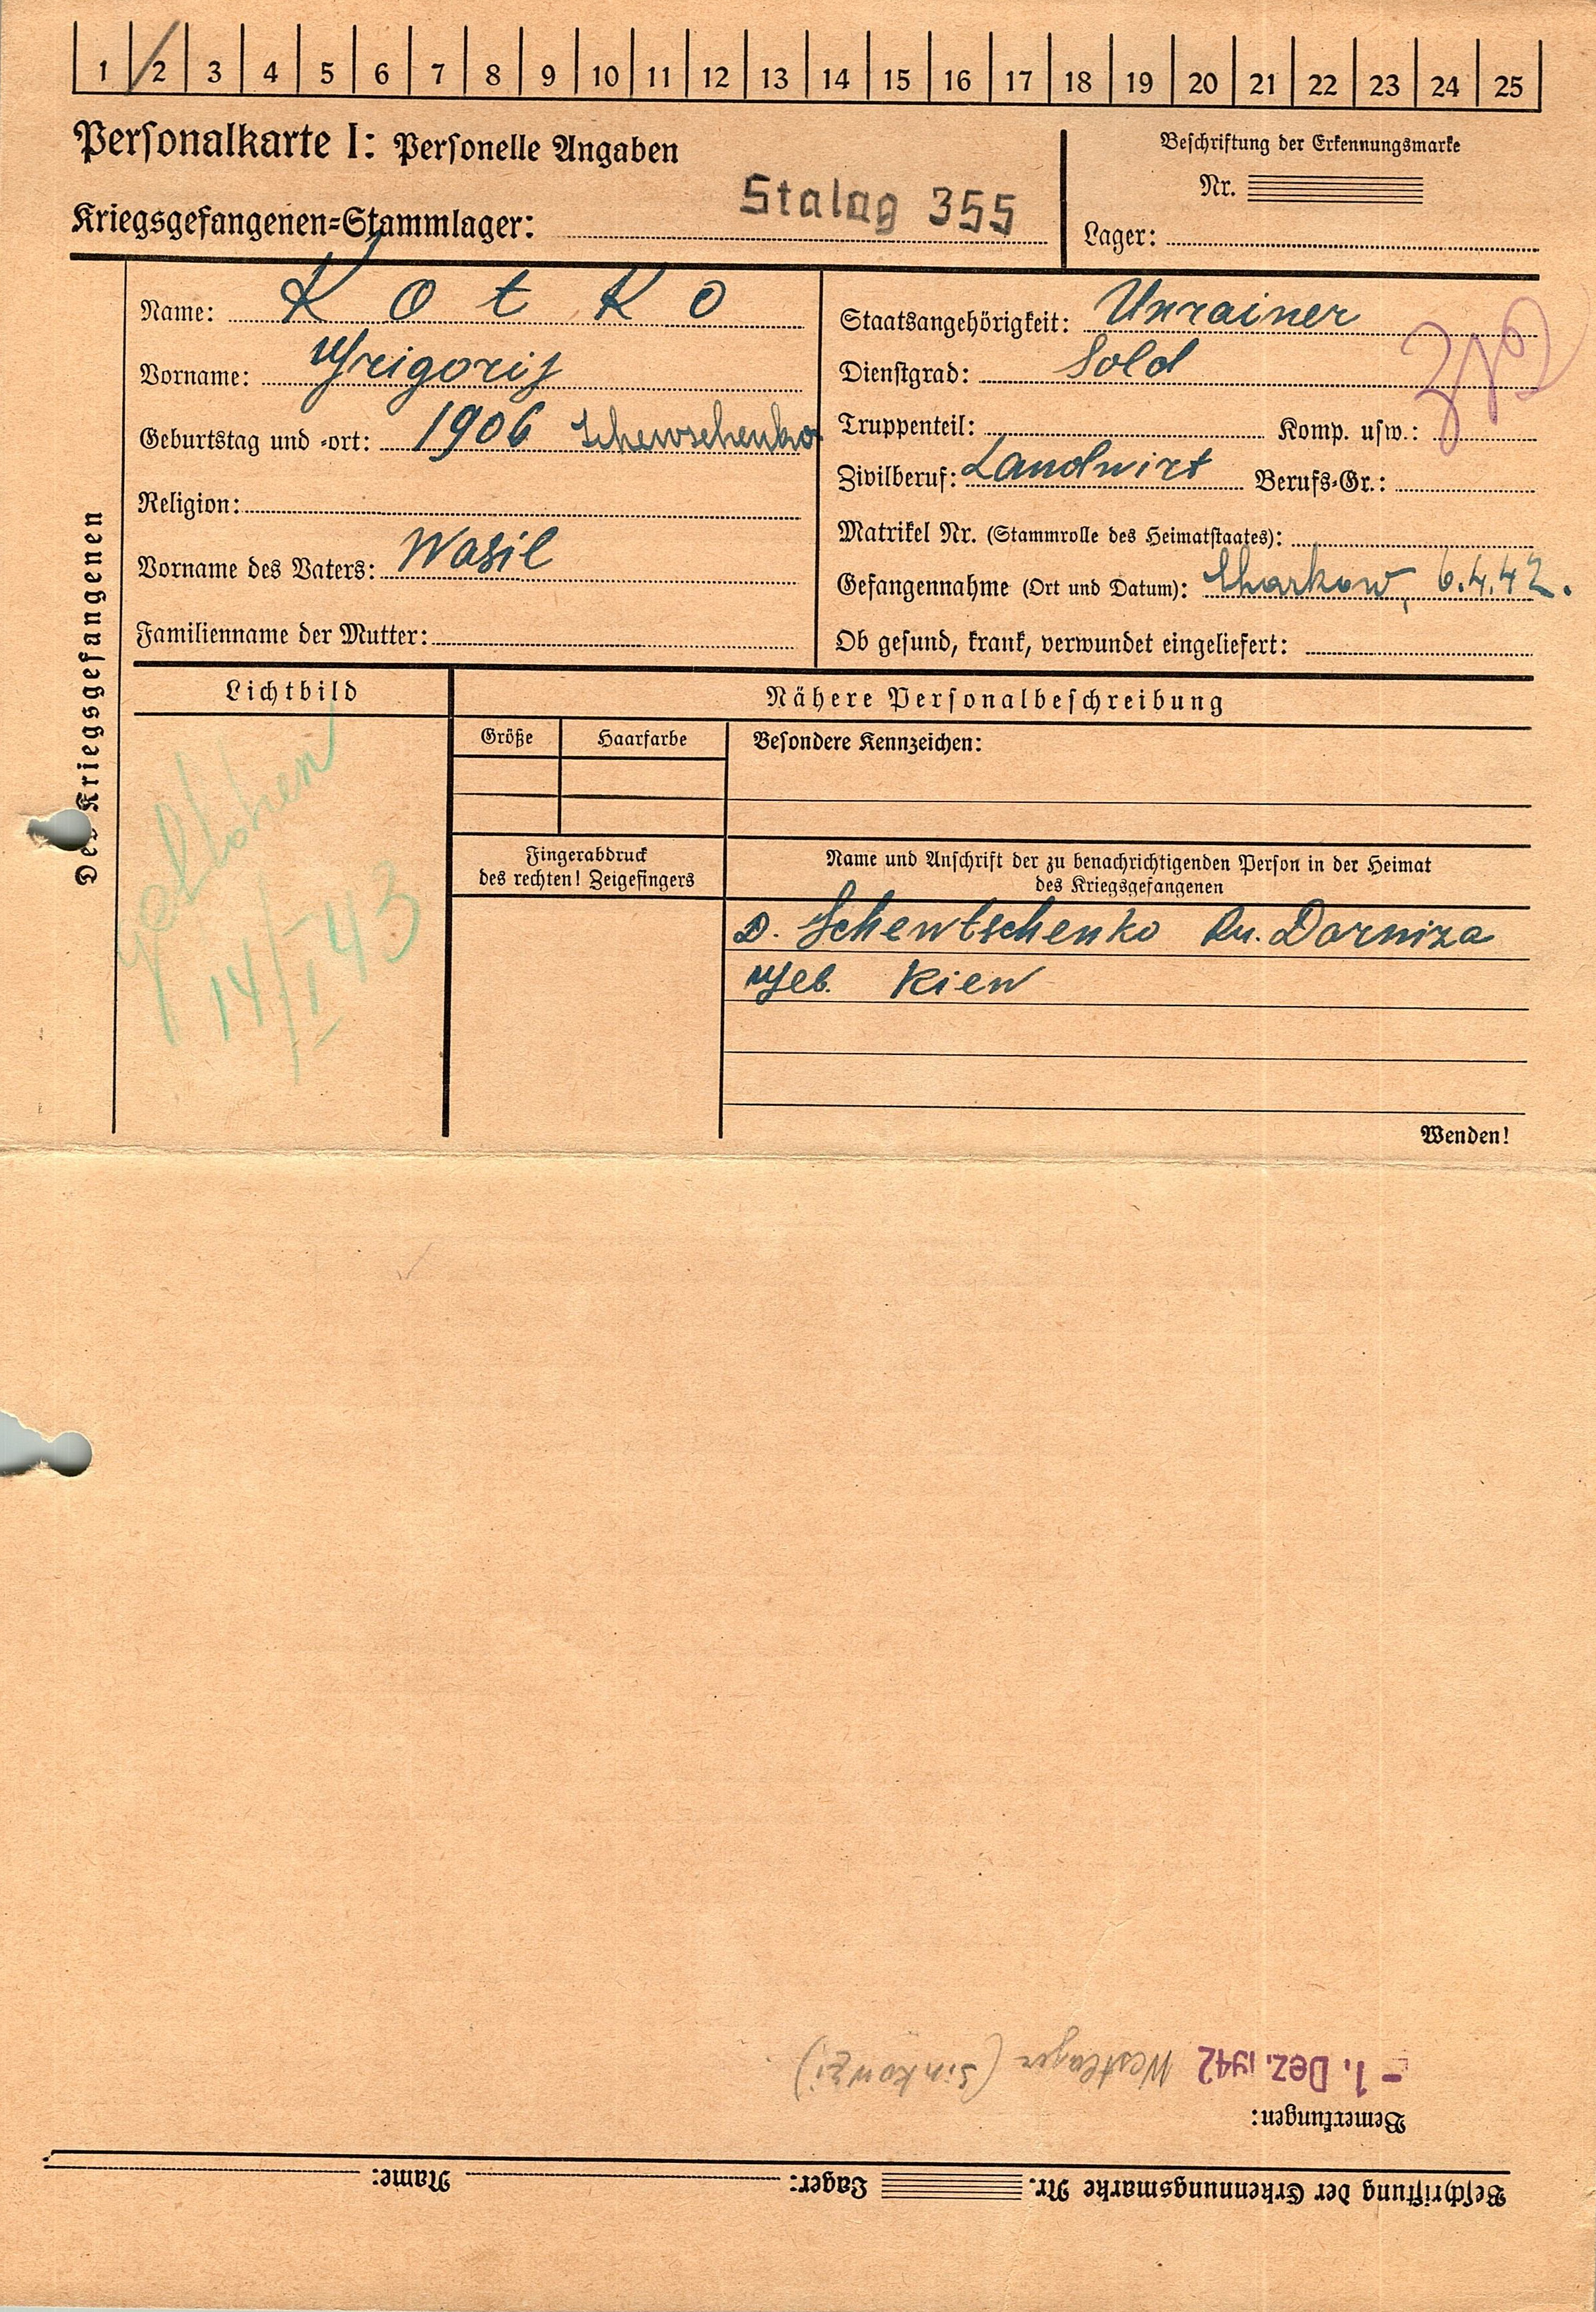 1 2 3 4 5 6 7 8 9 10 11 12 13 14 15 16 17 18 19 20 21 22 23 24 25
Personalkarte I: Personelle Angaben
Beschriftung der Erkennungsmarke
Nr.
Kriegsgefangenen-Stammlager: Stalag 355
Lager:
Des Kriegsgefangenen
Name: Kotko
Vorname: Grigorij
Geburtstag und -ort: 1906 Schewschenko
Religion:
Vorname des Vaters: Wasil
Familienname der Mutter:
Staatsangehörigkeit: Ukrainer
Dienstgrad: Sold
Truppenteil: Komp. usw.:
Zivilberuf: Landwirt Berufs-Gr.:
Matrikel Nr. (Stammrolle des Heimatstaates):
Gefangennahme (Ort und Datum): Charkow, 6.4.42.
Ob gesund, krank, verwundet eingeliefert:
Lichtbild
Nähere Personalbeschreibung
Größe Haarfarbe Besondere Kennzeichen:
Fingerabdruck
des rechten! Zeigefingers
Name und Anschrift der zu benachrichtigenden Person in der Heimat
des Kriegsgefangenen
D. Schewtschenko Rn. Darniza
Geb. Kiew
Gestorben
14/I 43
Wenden!
Beschriftung der Erkennungsmarke Nr. Lager: Name:
Bemerkungen:
- 1. Dez. 1942 Westlager (Sinkowzi)